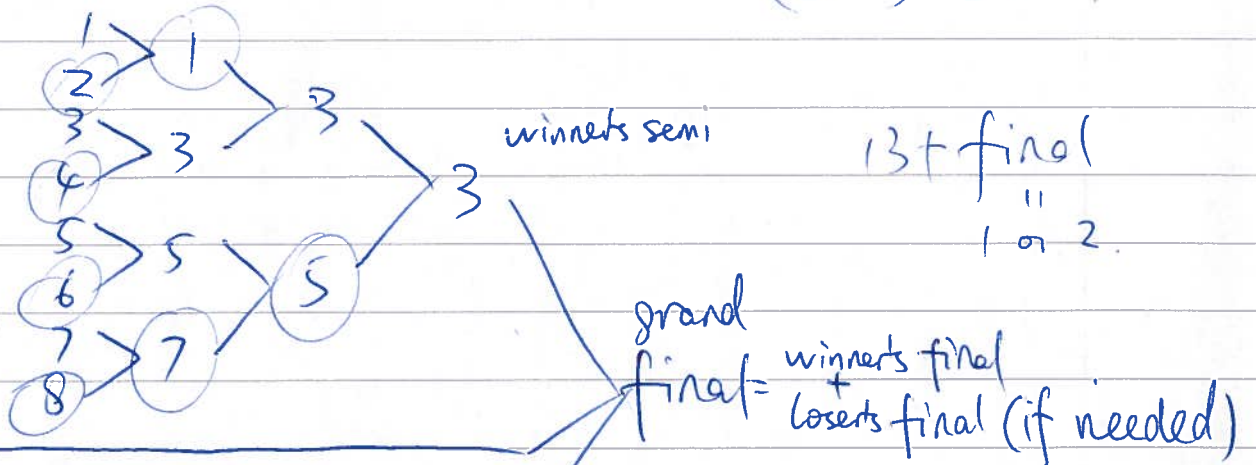 1
2
3
4
5
6
7
8
1
3
5
7
3
5
3
winner's semi
13 + final
"
1 or 2.
grand
final = winner's final
+
loser's final (if needed)